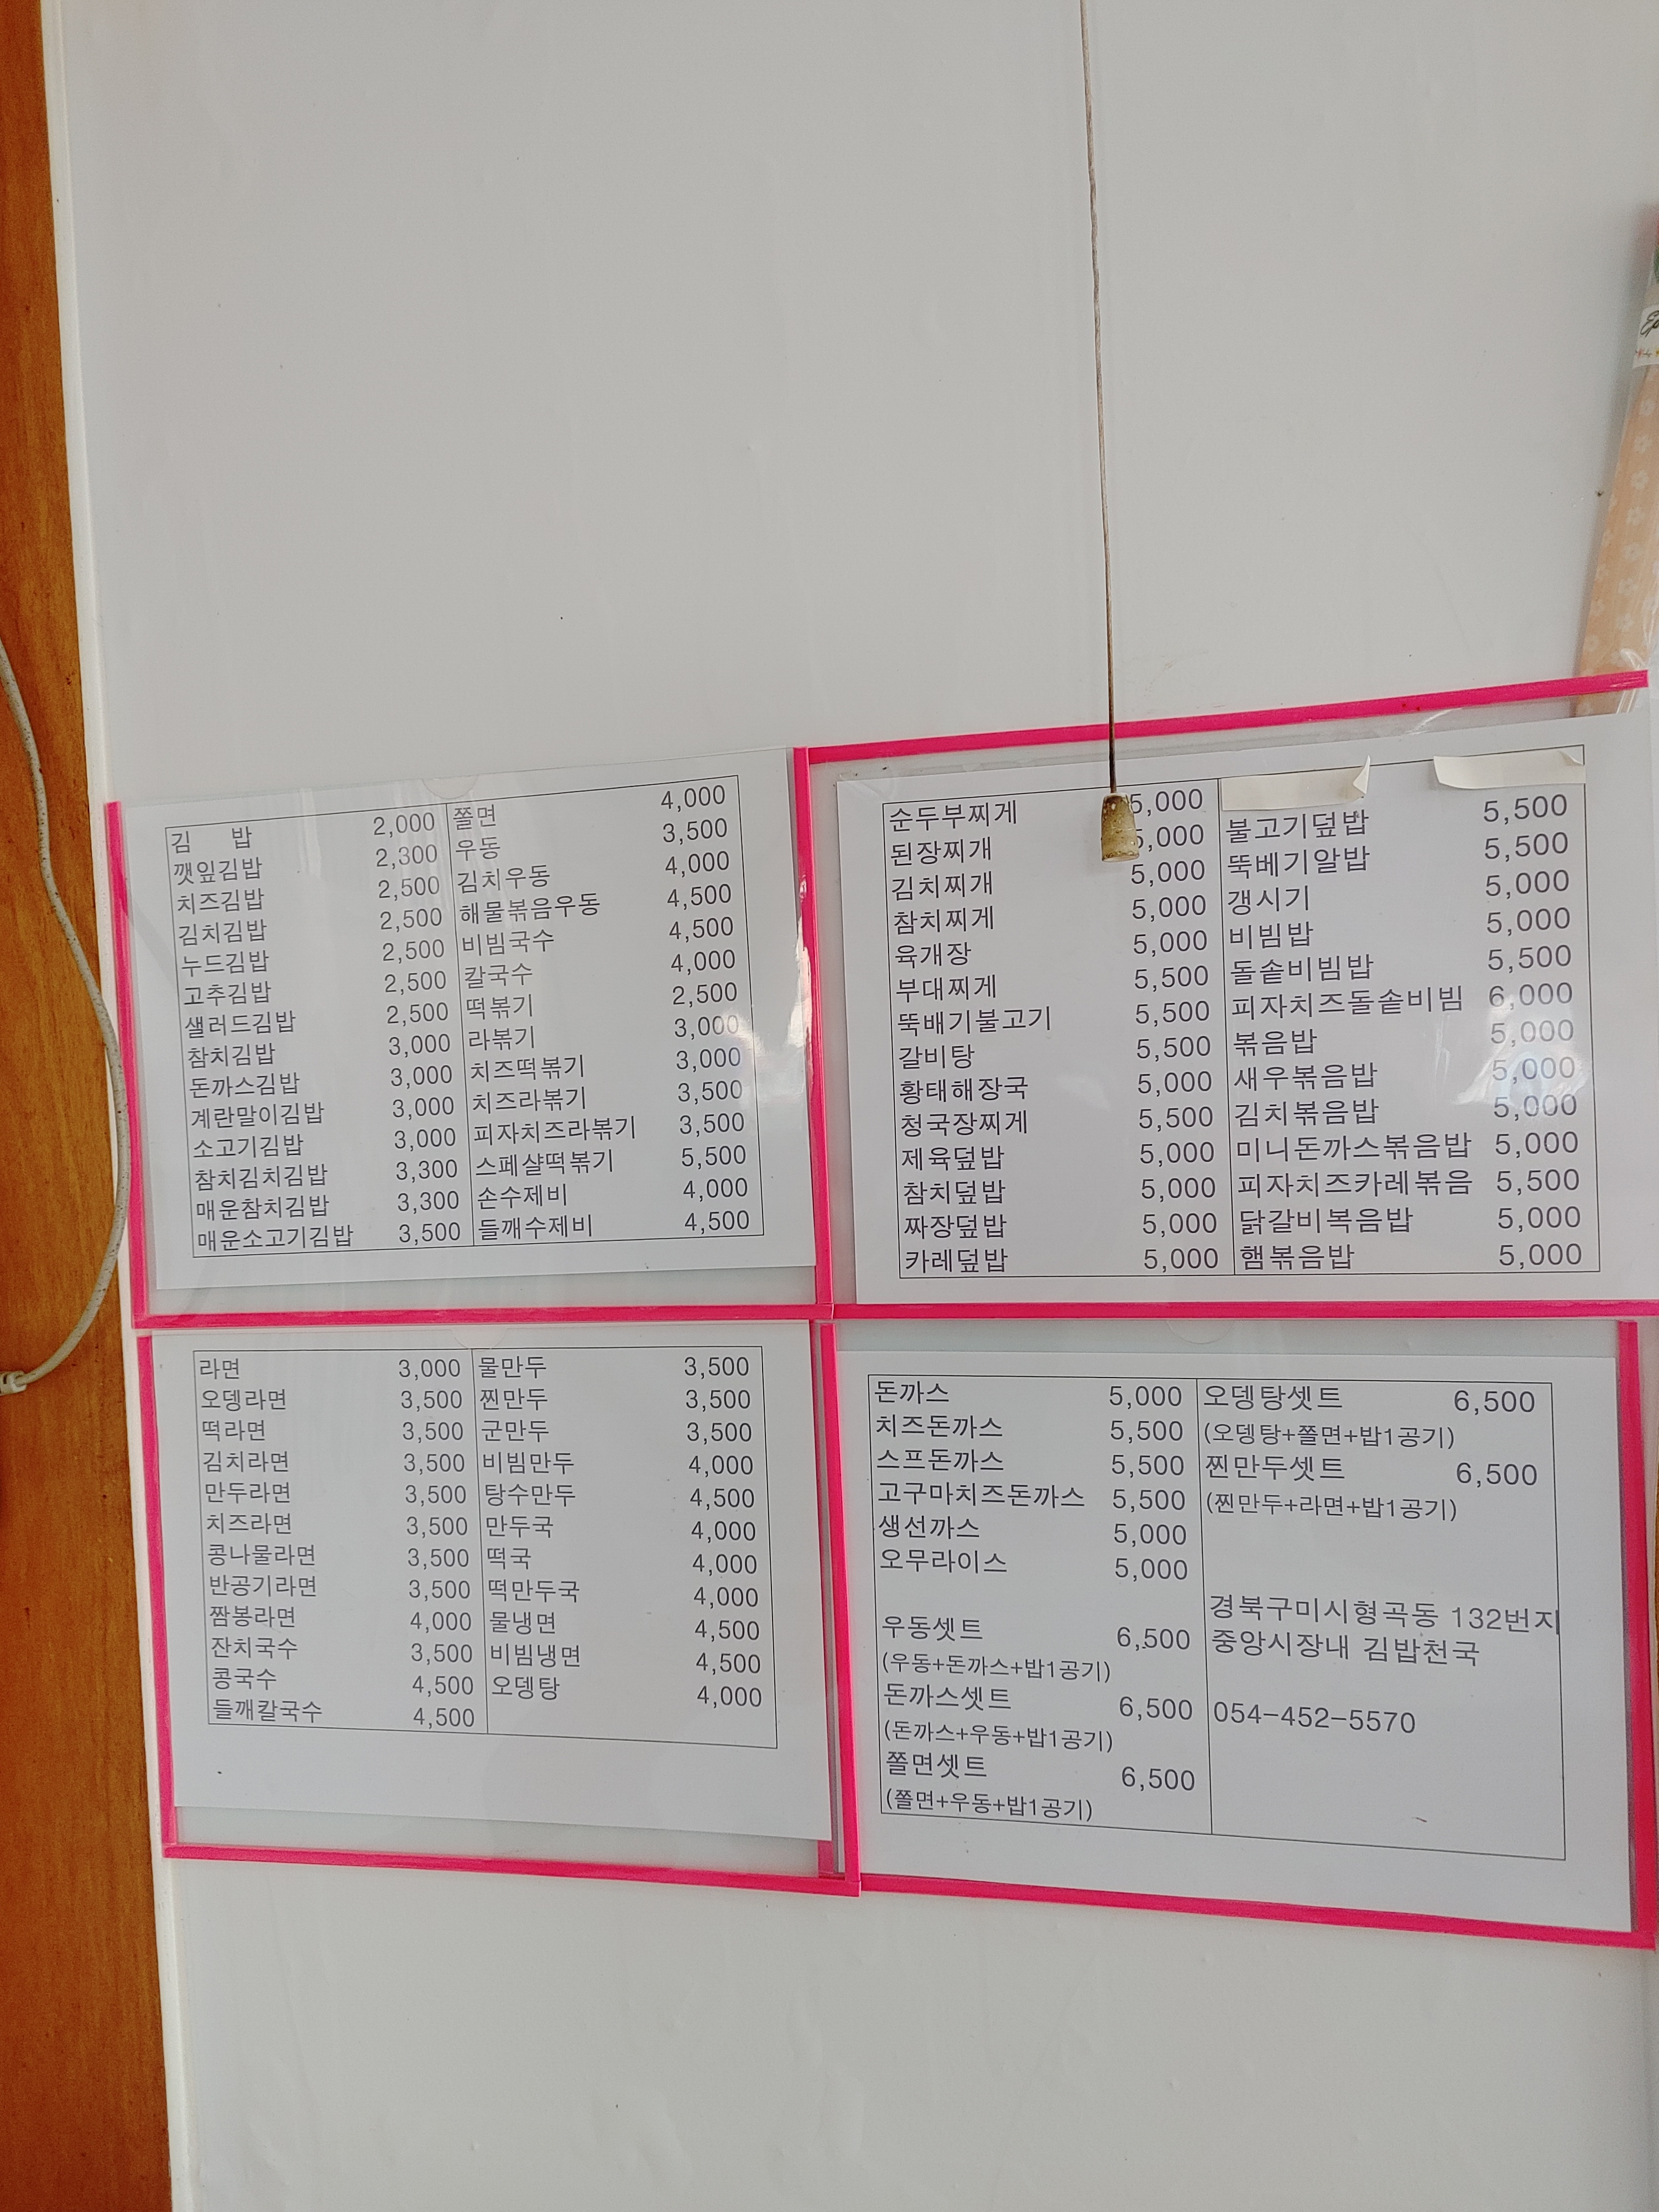 김 밥 2,000
깻잎김밥 2,300
치즈김밥 2,500
김치김밥 2,500
누드김밥 2,500
고추김밥 2,500
샐러드김밥 2,500
참치김밥 3,000
돈까스김밥 3,000
계란말이김밥 3,000
소고기김밥 3,000
참치김치김밥 3,300
매운참치김밥 3,300
매운소고기김밥 3,500
쫄면 4,000
우동 3,500
김치우동 4,000
해물볶음우동 4,500
비빔국수 4,500
칼국수 4,000
떡볶기 2,500
라볶기 3,000
치즈떡볶기 3,000
치즈라볶기 3,500
피자치즈라볶기 3,500
스페샬떡볶기 5,500
손수제비 4,000
들깨수제비 4,500
순두부찌게 5,000
된장찌개 5,000
김치찌개 5,000
참치찌게 5,000
육개장 5,000
부대찌게 5,500
뚝배기불고기 5,500
갈비탕 5,500
황태해장국 5,000
청국장찌게 5,500
제육덮밥 5,000
참치덮밥 5,000
짜장덮밥 5,000
카레덮밥 5,000
불고기덮밥 5,500
뚝베기알밥 5,500
갱시기 5,000
비빔밥 5,000
돌솥비빔밥 5,500
피자치즈돌솥비빔 6,000
볶음밥 5,000
새우볶음밥 5,000
김치볶음밥 5,000
미니돈까스볶음밥 5,000
피자치즈카레볶음 5,500
닭갈비복음밥 5,000
햄볶음밥 5,000
라면 3,000
오뎅라면 3,500
떡라면 3,500
김치라면 3,500
만두라면 3,500
치즈라면 3,500
콩나물라면 3,500
반공기라면 3,500
짬봉라면 4,000
잔치국수 3,500
콩국수 4,500
들깨칼국수 4,500
물만두 3,500
찐만두 3,500
군만두 3,500
비빔만두 4,000
탕수만두 4,500
만두국 4,000
떡국 4,000
떡만두국 4,000
물냉면 4,500
비빔냉면 4,500
오뎅탕 4,000
돈까스 5,000
치즈돈까스 5,500
스프돈까스 5,500
고구마치즈돈까스 5,500
생선까스 5,000
오무라이스 5,000
우동셋트 6,500
(우동+돈까스+밥1공기)
돈까스셋트 6,500
(돈까스+우동+밥1공기)
쫄면셋트 6,500
(쫄면+우동+밥1공기)
오뎅탕셋트 6,500
(오뎅탕+쫄면+밥1공기)
찐만두셋트 6,500
(찐만두+라면+밥1공기)
경북구미시형곡동 132번지
중앙시장내 김밥천국
054-452-5570